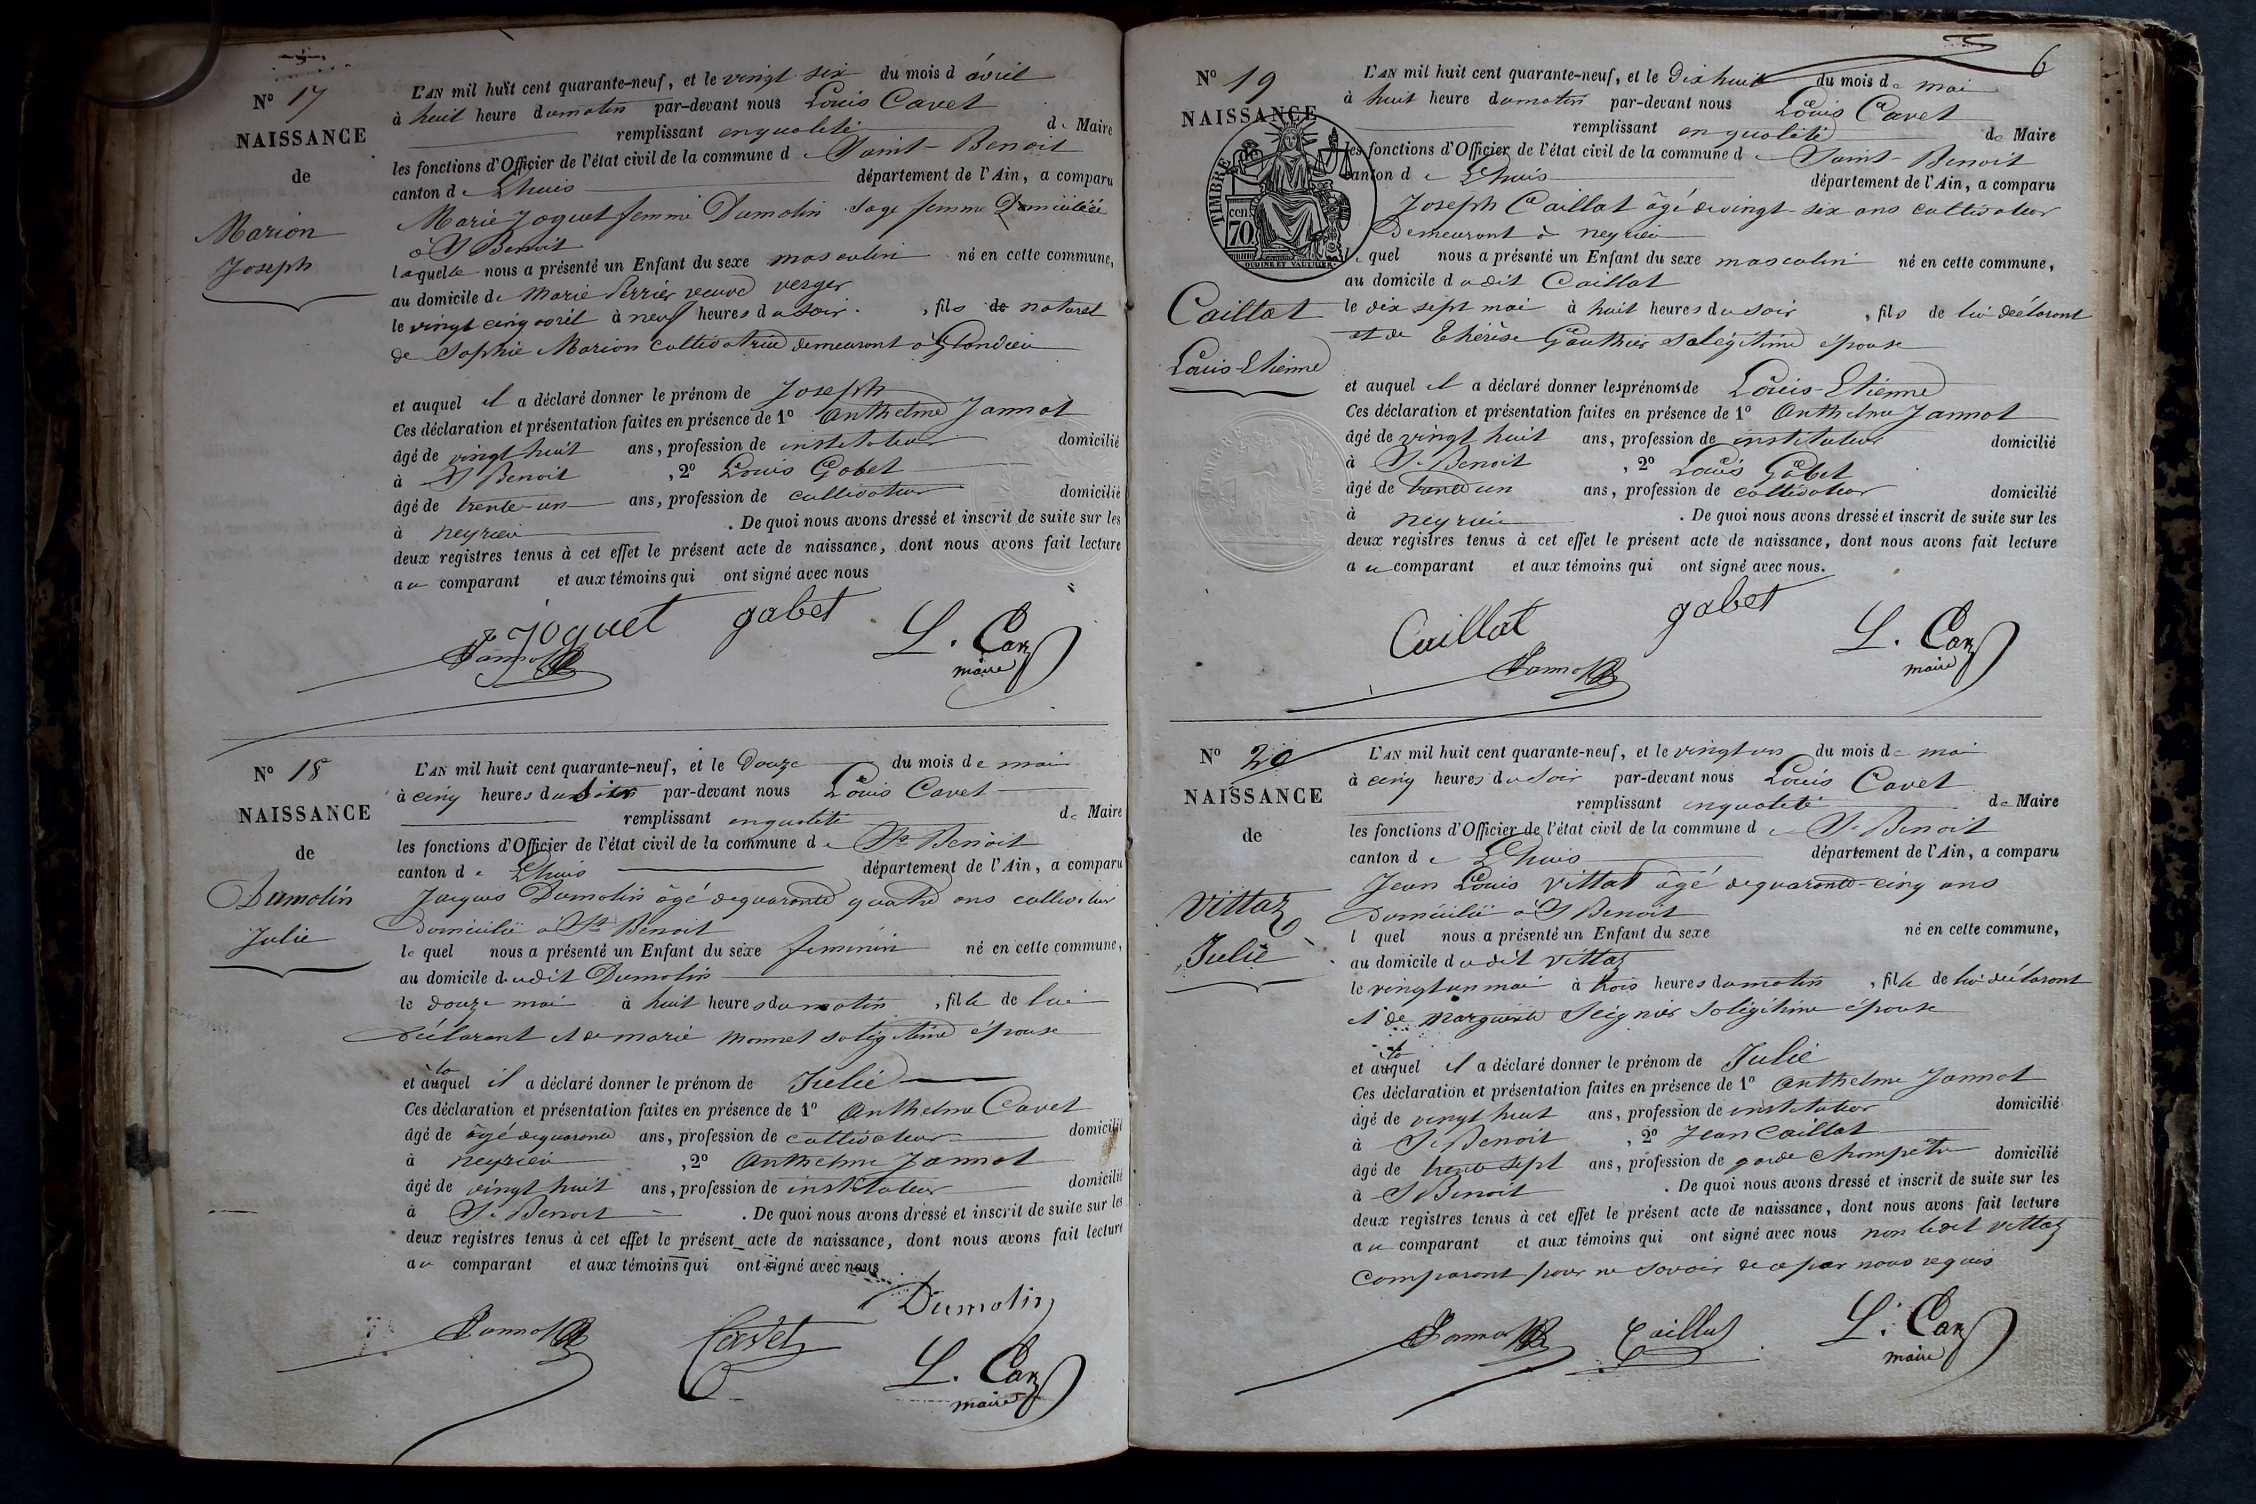 N° 17
NAISSANCE
de
Marion
Joseph
L'AN mil huit cent quarante-neuf, et le vingt six du mois d avril
à huit heure du matin par-devant nous Louis Cavet
remplissant en qualité de Maire
les fonctions d'Officier de l'état civil de la commune de Saint-Benoit
canton de Lhuis département de l'Ain, a comparu
Marie Joguet femme Dumolin sage femme Domiciliée
à St Benoit
laquelle nous a présenté un Enfant du sexe masculin né en cette commune,
au domicile de Marie Perrier veuve verger
le vingt cinq avril à neuf heures du soir, fils de naturel
de Sophie Marion cultivatrice demeurant à Glandieu
et auquel il a déclaré donner le prénom de Joseph
Ces déclaration et présentation faites en présence de 1° Anthelme Jannot
âgé de vingt huit ans, profession de instituteur domicilié
à St Benoit, 2° Louis Gabet
âgé de trente-un ans, profession de cultivateur domicilié
à neyrieu. De quoi nous avons dressé et inscrit de suite sur les
deux registres tenus à cet effet le présent acte de naissance, dont nous avons fait lecture
au comparant et aux témoins qui ont signé avec nous
Joguet gabet L. Cavet
Jannot maire
N° 18
NAISSANCE
de
Dumolin
Julie
L'AN mil huit cent quarante-neuf, et le Douze du mois de mai
à cinq heures du soir par-devant nous Louis Cavet
remplissant en qualité de Maire
les fonctions d'Officier de l'état civil de la commune de St Benoit
canton de Lhuis département de l'Ain, a comparu
Jacques Dumolin âgé de quarante quatre ans cultivateur
Domicilié à St Benoit
le quel nous a présenté un Enfant du sexe féminin né en cette commune,
au domicile dudit Dumolin
le douze mai à huit heures du matin, fille de lui
déclarant et de marie monnet sa légitime épouse
et àuquel la il a déclaré donner le prénom de Julie
Ces déclaration et présentation faites en présence de 1° Anthelme Cavet
âgé de âgé de quarante ans, profession de cultivateur domicilié
à neyrieu, 2° Anthelme Jannot
âgé de vingt huit ans, profession de instituteur domicilié
à St Benoit. De quoi nous avons dressé et inscrit de suite sur les
deux registres tenus à cet effet le présent acte de naissance, dont nous avons fait lecture
au comparant et aux témoins qui ont signé avec nous
Dumolin
Jannot Cavet
L. Cavet
maire
6
N° 19
NAISSANCE
de
TIMBRE
cen.
70
OUDINÉ ET VAUTHIER
Caillat
Louis-Etienne
L'AN mil huit cent quarante-neuf, et le Dix huit du mois de mai
à huit heure du matin par-devant nous Louis Cavet
remplissant en qualité de Maire
les fonctions d'Officier de l'état civil de la commune de Saint-Benoit
canton de Lhuis département de l'Ain, a comparu
Joseph Caillat âgé de vingt-six ans cultivateur
Demeurant à neyrieu
le quel nous a présenté un Enfant du sexe masculin né en cette commune,
au domicile dudit Caillat
le dix sept mai à huit heures du soir, fils de lui déclarant
et de Thérèse Gauthier sa légitime épouse
et auquel il a déclaré donner les prénoms de Louis-Etienne
Ces déclaration et présentation faites en présence de 1° Anthelme Jannot
âgé de vingt huit ans, profession de instituteur domicilié
à St Benoit, 2° Louis Gabet
âgé de trente un ans, profession de cultivateur domicilié
à neyrieu. De quoi nous avons dressé et inscrit de suite sur les
deux registres tenus à cet effet le présent acte de naissance, dont nous avons fait lecture
au comparant et aux témoins qui ont signé avec nous.
Caillat gabet L. Cavet
Jannot maire
N° 20
NAISSANCE
de
Vittoz
Julie
L'AN mil huit cent quarante-neuf, et le vingt un du mois de mai
à cinq heures du soir par-devant nous Louis Cavet
remplissant en qualité de Maire
les fonctions d'Officier de l'état civil de la commune de St Benoit
canton de Lhuis département de l'Ain, a comparu
Jean Louis Vittoz âgé de quarante-cinq ans
Domicilié à St Benoit
l quel nous a présenté un Enfant du sexe né en cette commune,
au domicile dudit Vittoz
le vingt un mai à trois heures du matin, fille de lui déclarant
et de Marguerite Seignier sa légitime épouse
et àuquel la il a déclaré donner le prénom de Julie
Ces déclaration et présentation faites en présence de 1° Anthelme Jannot
âgé de vingt huit ans, profession de instituteur domicilié
à St Benoit, 2° Jean Caillat
âgé de trente sept ans, profession de garde champêtre domicilié
à St Benoit. De quoi nous avons dressé et inscrit de suite sur les
deux registres tenus à cet effet le présent acte de naissance, dont nous avons fait lecture
au comparant et aux témoins qui ont signé avec nous non ledit Vittoz
comparant pour ne savoir de ce par nous requis
Jannot Caillat L. Cavet
maire